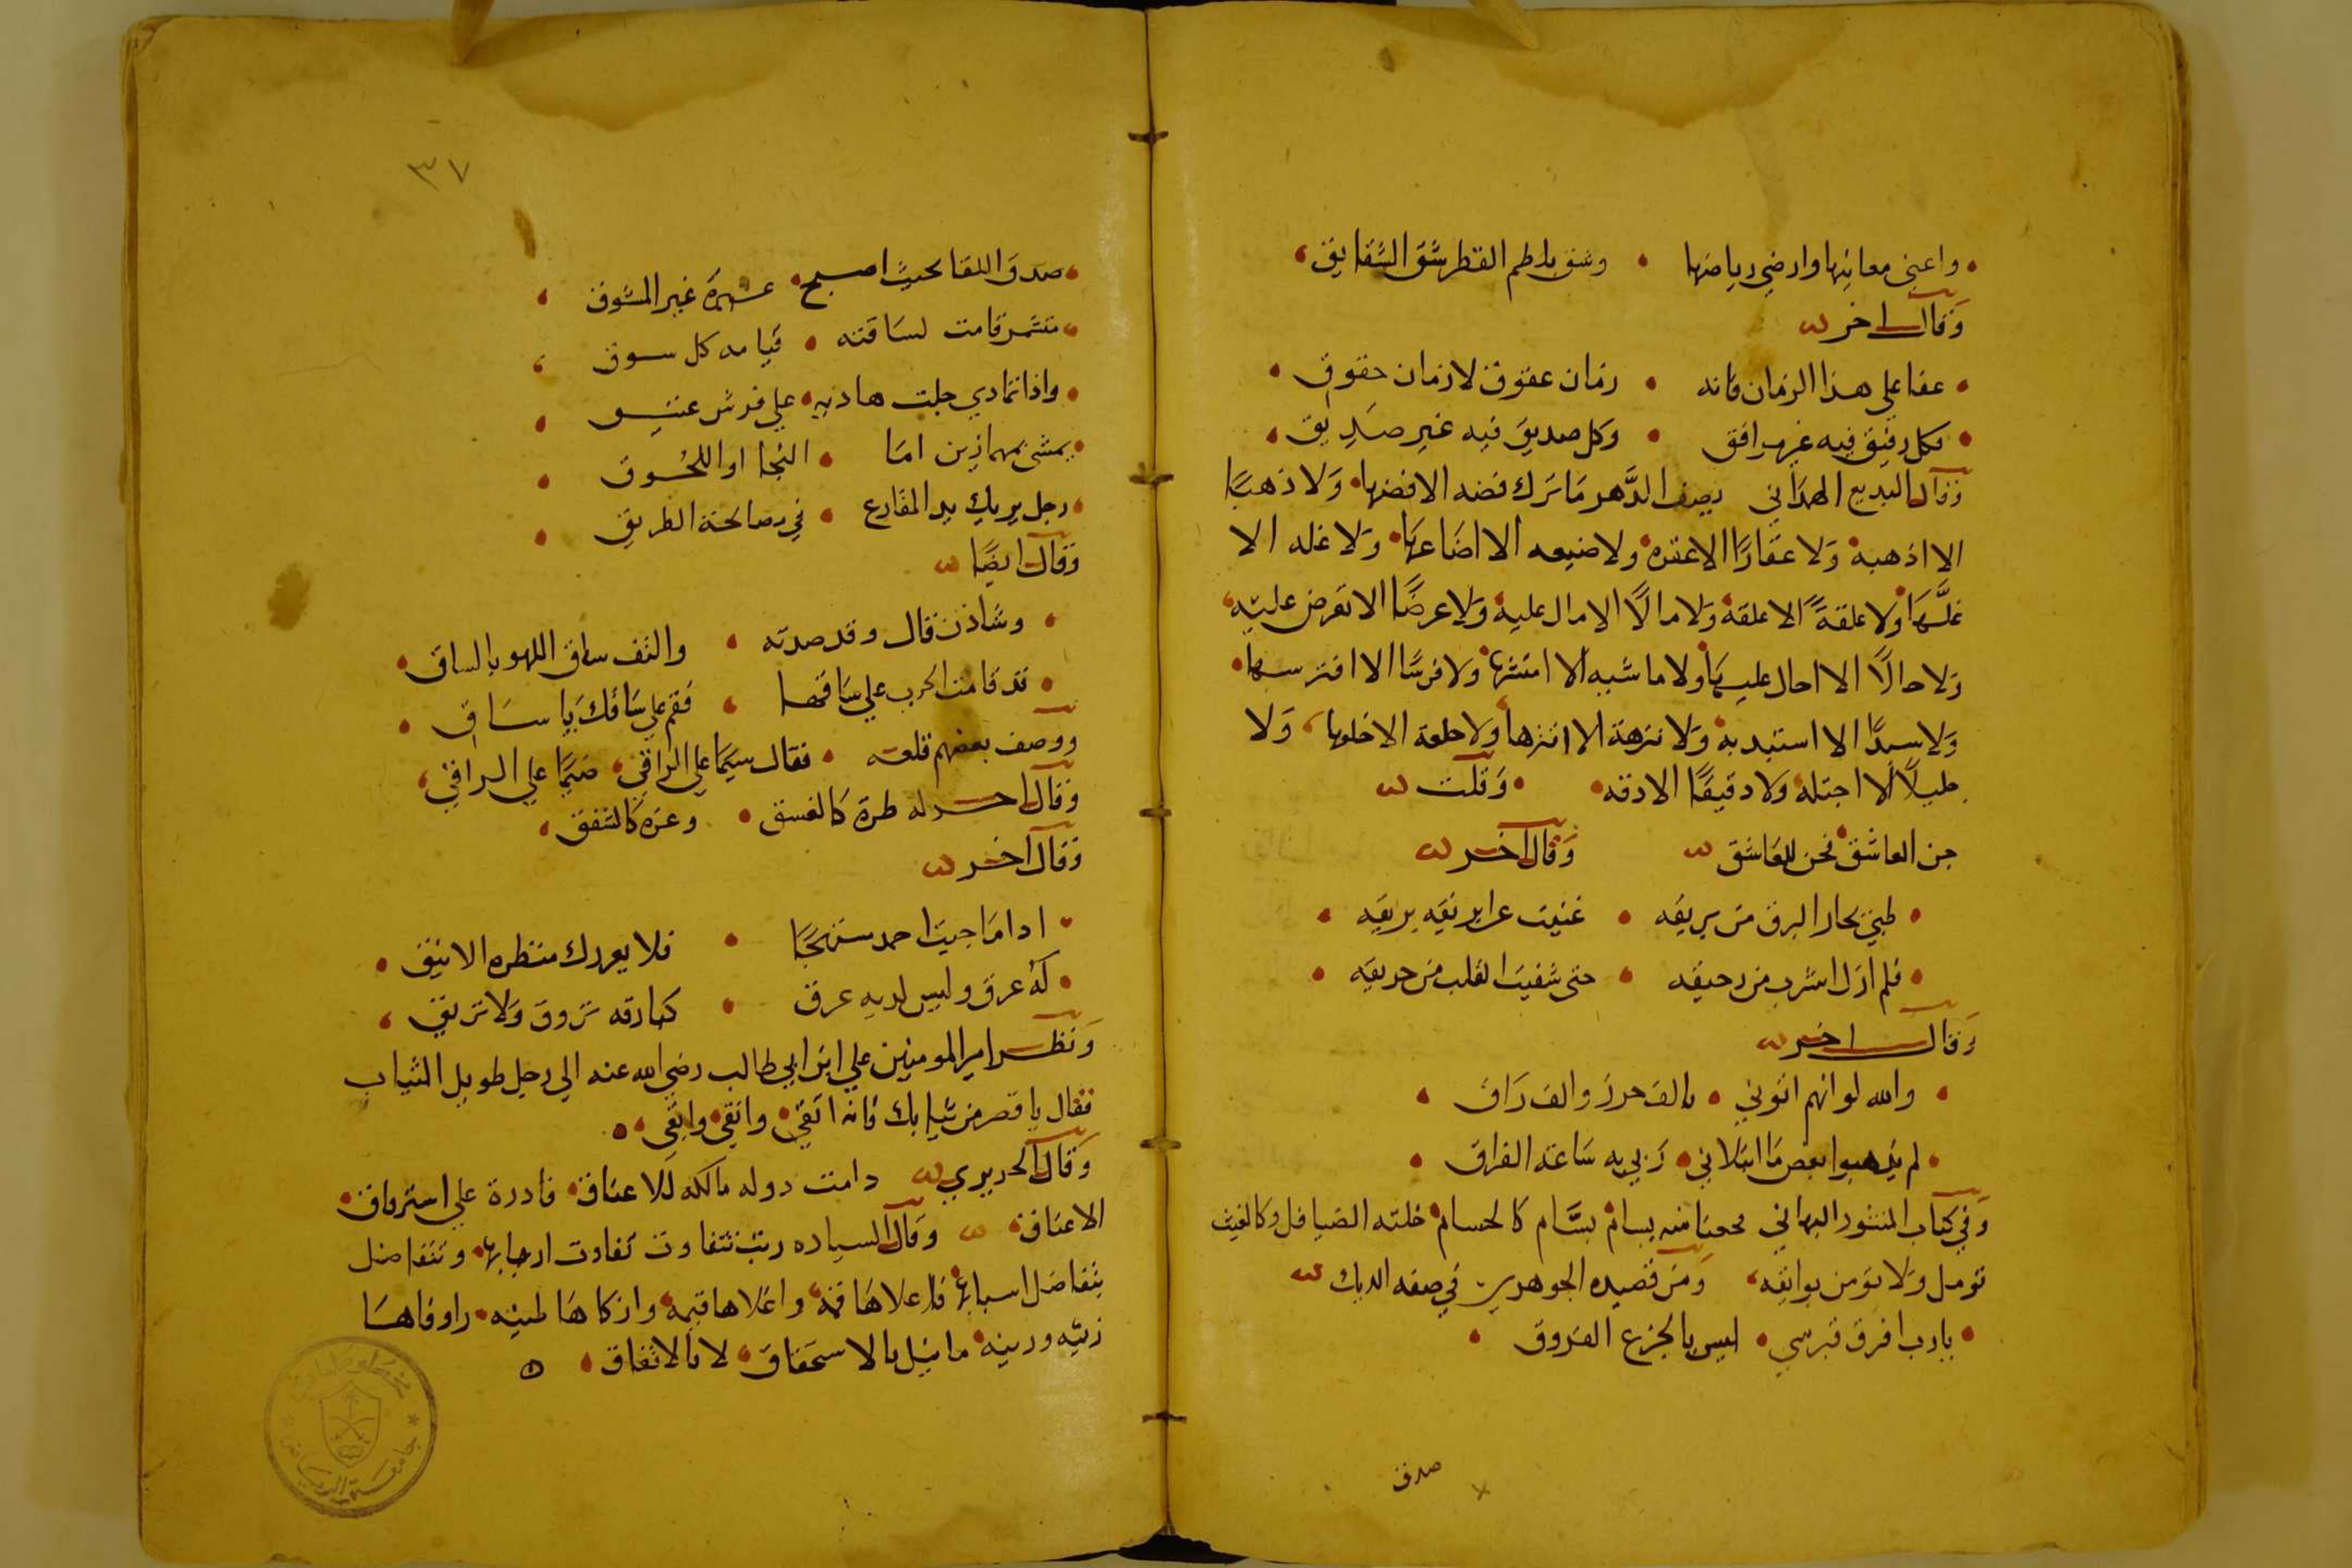 واعبى معانيها وارضي رياضها • وشق بلطم القطر شق الشقايق
وقال اخر
عفا علي هذا الزمان فانه • زمان عقوق لا زمان حقوق
فكل رفيق فيه غير مرافق • وكل صديق فيه غير صديق
وقال البديع الهمداني يصف الدهر ما ترك فضه الا فضها • ولا ذهبا
الا اذهبه • ولا عقارا الا عقره • ولا ضيعه الا اضاعها • ولا غله الا
غلها • ولا علقة الا علقه • ولا مالا الا مال عليه • ولا عرضا الا تعرض عليه
ولا حالا الا احال عليها • ولا ماشيه الا امتشها • ولا فرسا الا افترسها
ولا سبدا الا استبد به • ولا نزهة الا انزها • ولا خلعة الا خلعها • ولا
جليلا الا اجتله • ولا دقيقا الا ادقه • وقلت
جن العاشق نحن للعاشق وقال اخر
طبي بحار البرق من بريقه • غنيت عن ابريقه بريقه
فلم ازل اشرب من رحيقه • حتى شفيت القلب من حريقه
وقال اخر
والله لو انهم اتوني • بالف حرز والف راق
لم يذهبوا بعض ما ابتلاني • ربي به ساعة الفراق
وفي كتاب المنثور البهاني بسام كالحسام • خلته الصياقل وكالغيث
تومل ولا تومن بوايقه ومن قصيده الجوهري في صفه الديك
يا رب افرق قبرسي • ليس بالجزع الفروق
صدق
٣٧
صدق اللقا بحيث اصبح • شهرة غير المشوق
متشمر قامت لساقته • قيامه كل سوق
واذا تمادي جلت هاذيه • علي فرش عتيق
يمشي بمهمازين اما • النجا او اللحوق
رجل يريك يد المقارع • في مصالحة الطريق
وقال ايضا
وشاذن قال وقد صدته • والتف ساق اللهو بالساق
قد قامت الحرب علي ساقها • فقم علي ساقك يا ساق
ووصف بعضهم قلعه • فقال سيما علي الراقي، ضيما علي الراقي
وقال اخر له طرة كالغسق • وغره كالشفق
وقال اخر
اذا ما جيت احمد مستهجا • فلا يغررك منظره الانيق
له عرق وليس لديه عرق • كبارقه تروق ولا تريق
ونظر امير المومنين علي ابن ابي طالب رضي الله عنه الي رجل طويل الثياب
فقال يا قصر من ثيابك فانه اتقي • وانقي وابقي
وقال الحريري دامت دوله مالكه للاعناق • قادرة علي استرقاق
الاعناق وقال السياده رتب تتفاوت تفاوت اربابها • وتتفاضل
بتفاضل اسبابها فاعلاها قمة، واغلاها قيمه، وازكاها طينه • واوفاها
زنيه وزينه • ما نيل بالاستحقاق، لا بالاتفاق
مخطوطات
جامعة الرياض